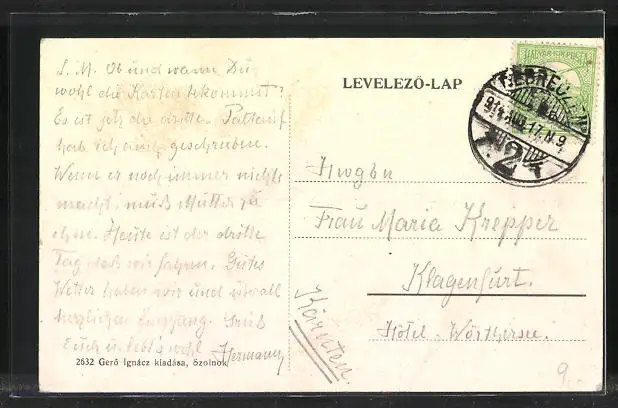 L. M. Ob und wann Du
wohl die Karten bekommst?
Es ist jetzt die dritte.
hab ich auch geschrieben.
Wenn er noch immer nichts
macht, muß Mutter zu
ihm. Heute ist der dritte
Tag daß wir fahren. Gutes
Wetter haben wir und überall
herzlichen Empfang. Grüß
Euch u. lebt's wohl
Hermann
2632 Gerő Ignácz kiadása, őzolnok
LEVELEZŐ-LAP
MAGYAR KIR. POSTA
DEBRECZEN
914 AUG 17 N 9
2
Frau Maria Krepper
Klagenfurt.
Hôtel - Wörthersee.
Kärnten.
9